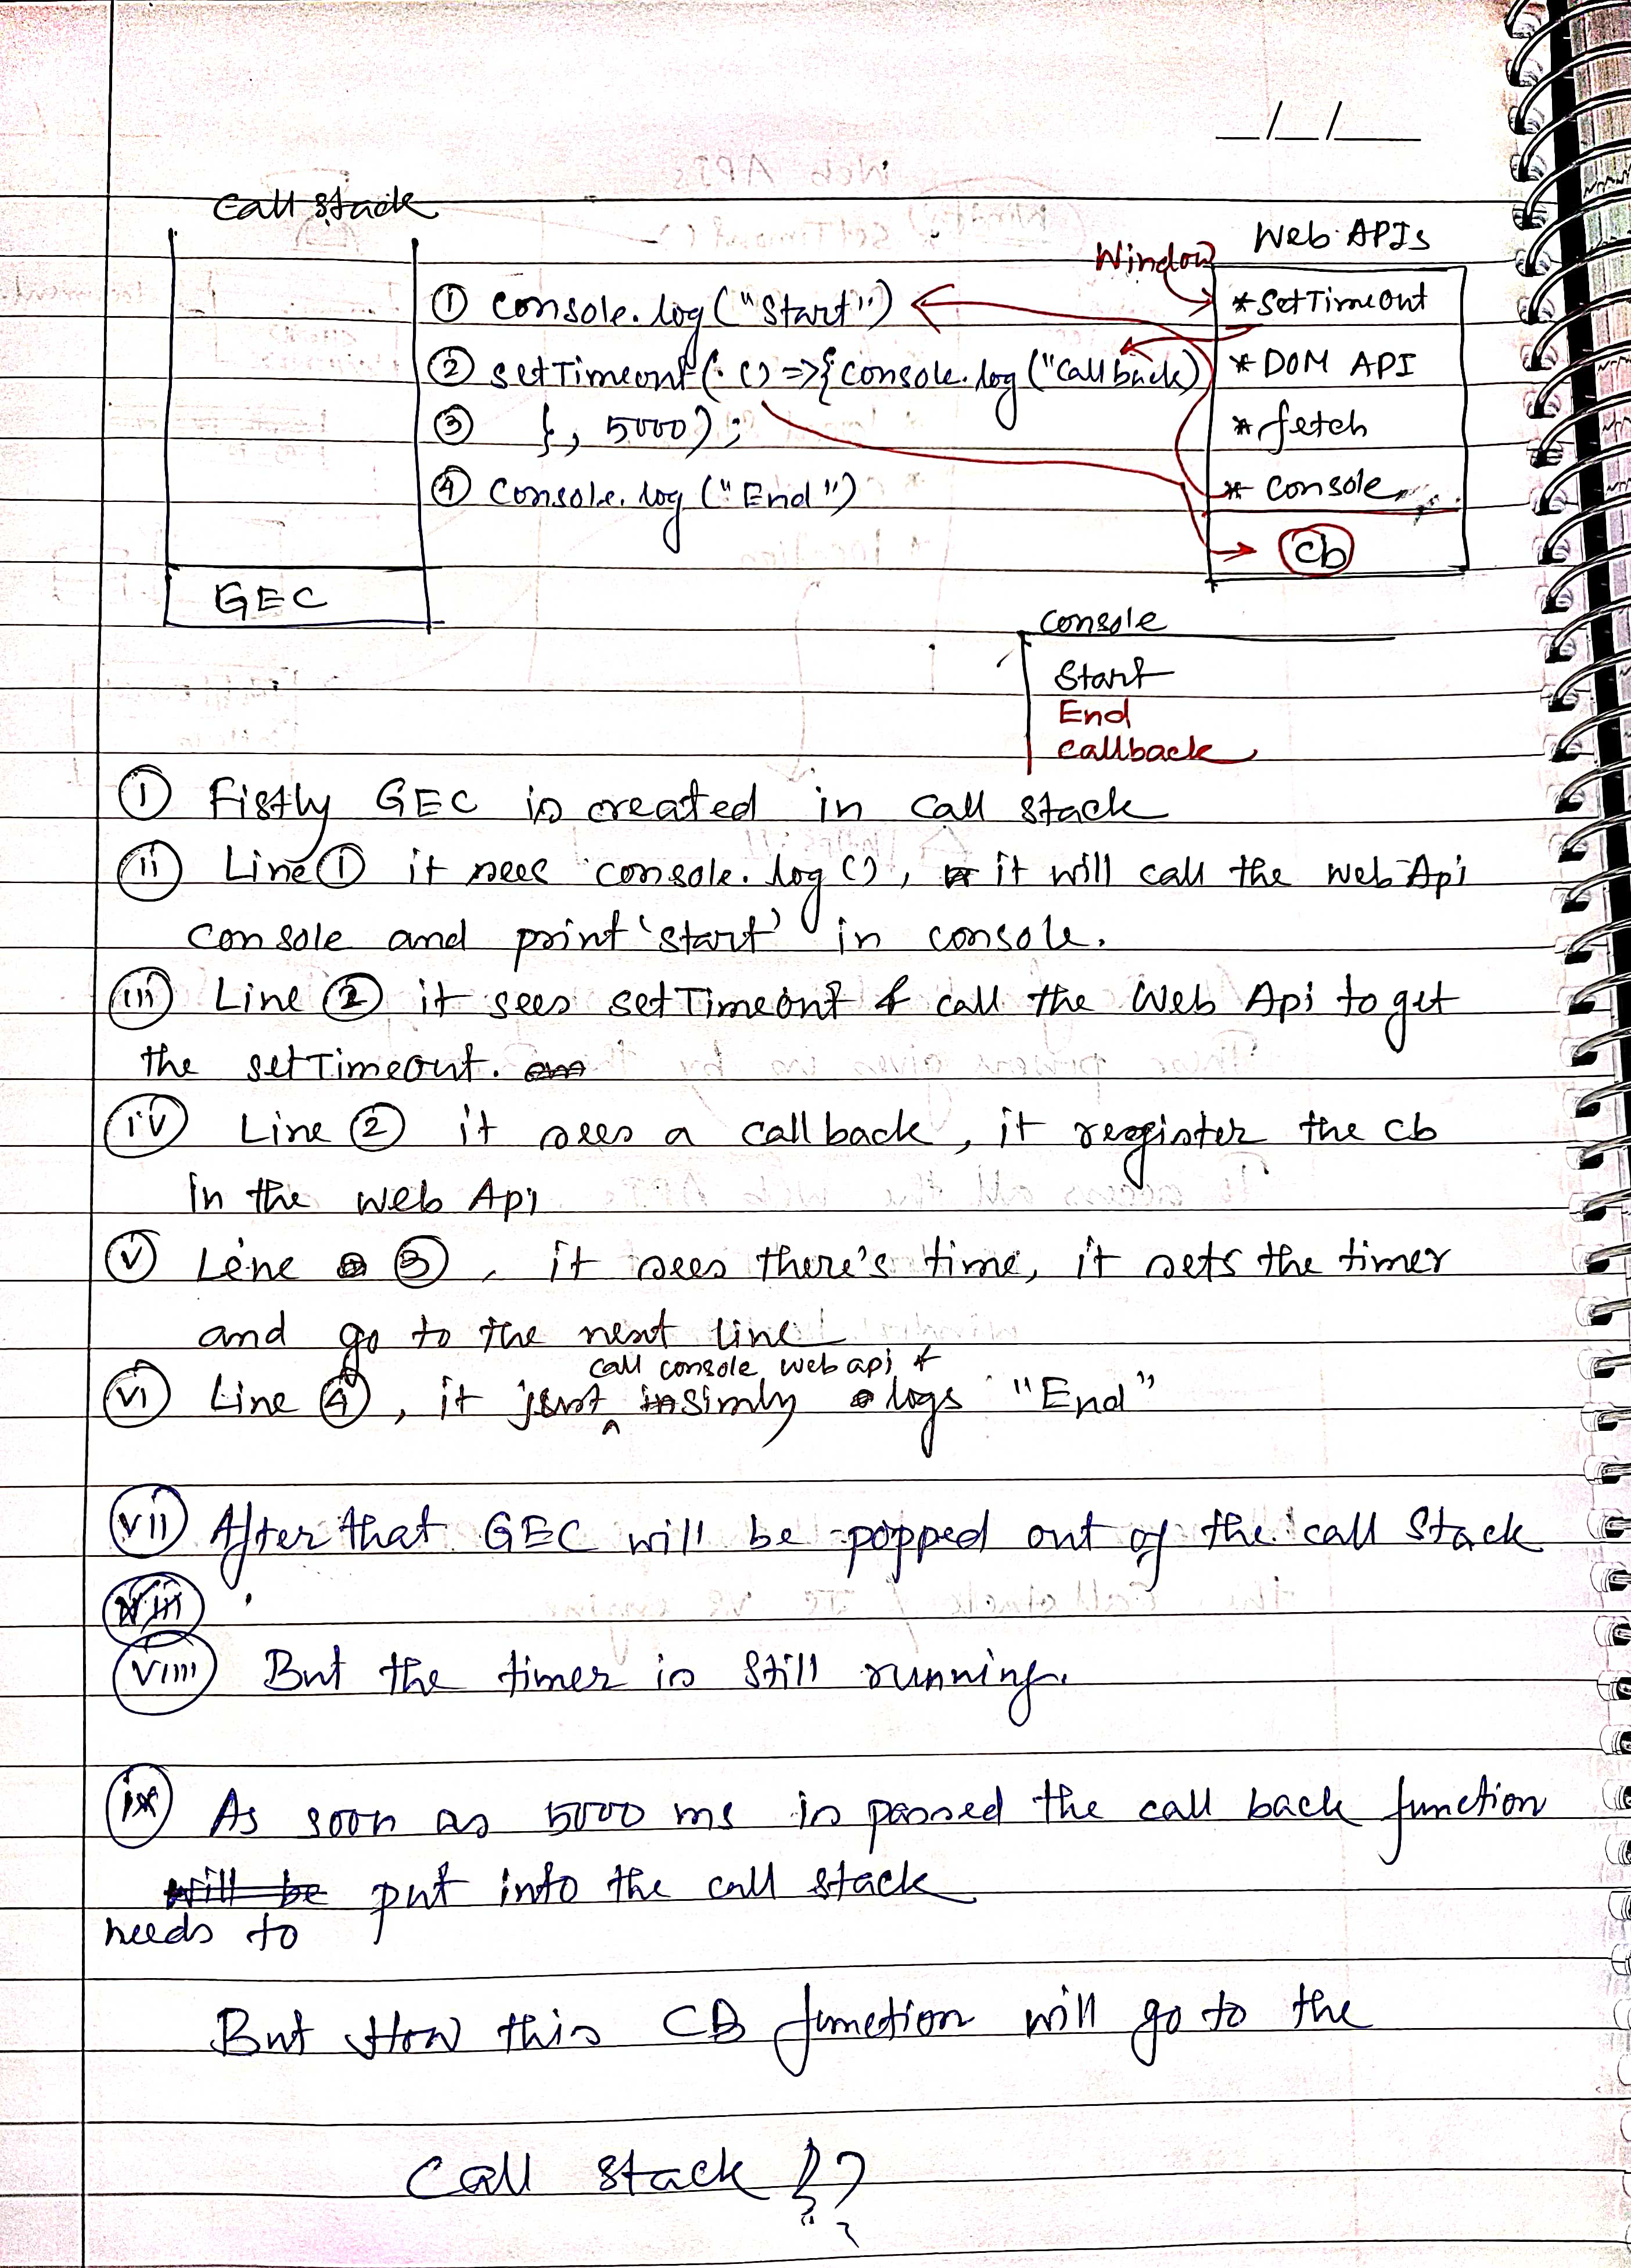 _/_/__
Call stack
Web APIs
Window
① console.log("Start")
② setTimeout(() => {console.log("Callback)
③ }, 5000);
④ Console.log("End")
* SetTimeOut
* DOM API
* fetch
* console
cb
GEC
console
Start
End
callback
① Fistly GEC is created in call stack
ⅱ Line ① it sees console.log(), it will call the web Api
console and print 'start' in console.
ⅲ Line ② it sees setTimeout & call the Web Api to get
the setTimeout.
ⅳ Line ② it sees a callback, it register the cb
in the web Api
ⅴ Line ③, it sees there's time, it sets the timer
and go to the next line
call console web api &
ⅵ Line ④, it just ^ simly logs "End"
ⅶ After that GEC will be popped out of the call stack
viii
viiii But the timer is still running.
ix As soon as 5000 ms is passed the call back function
will be put into the call stack
needs to
But How this CB function will go to the
Call stack ??